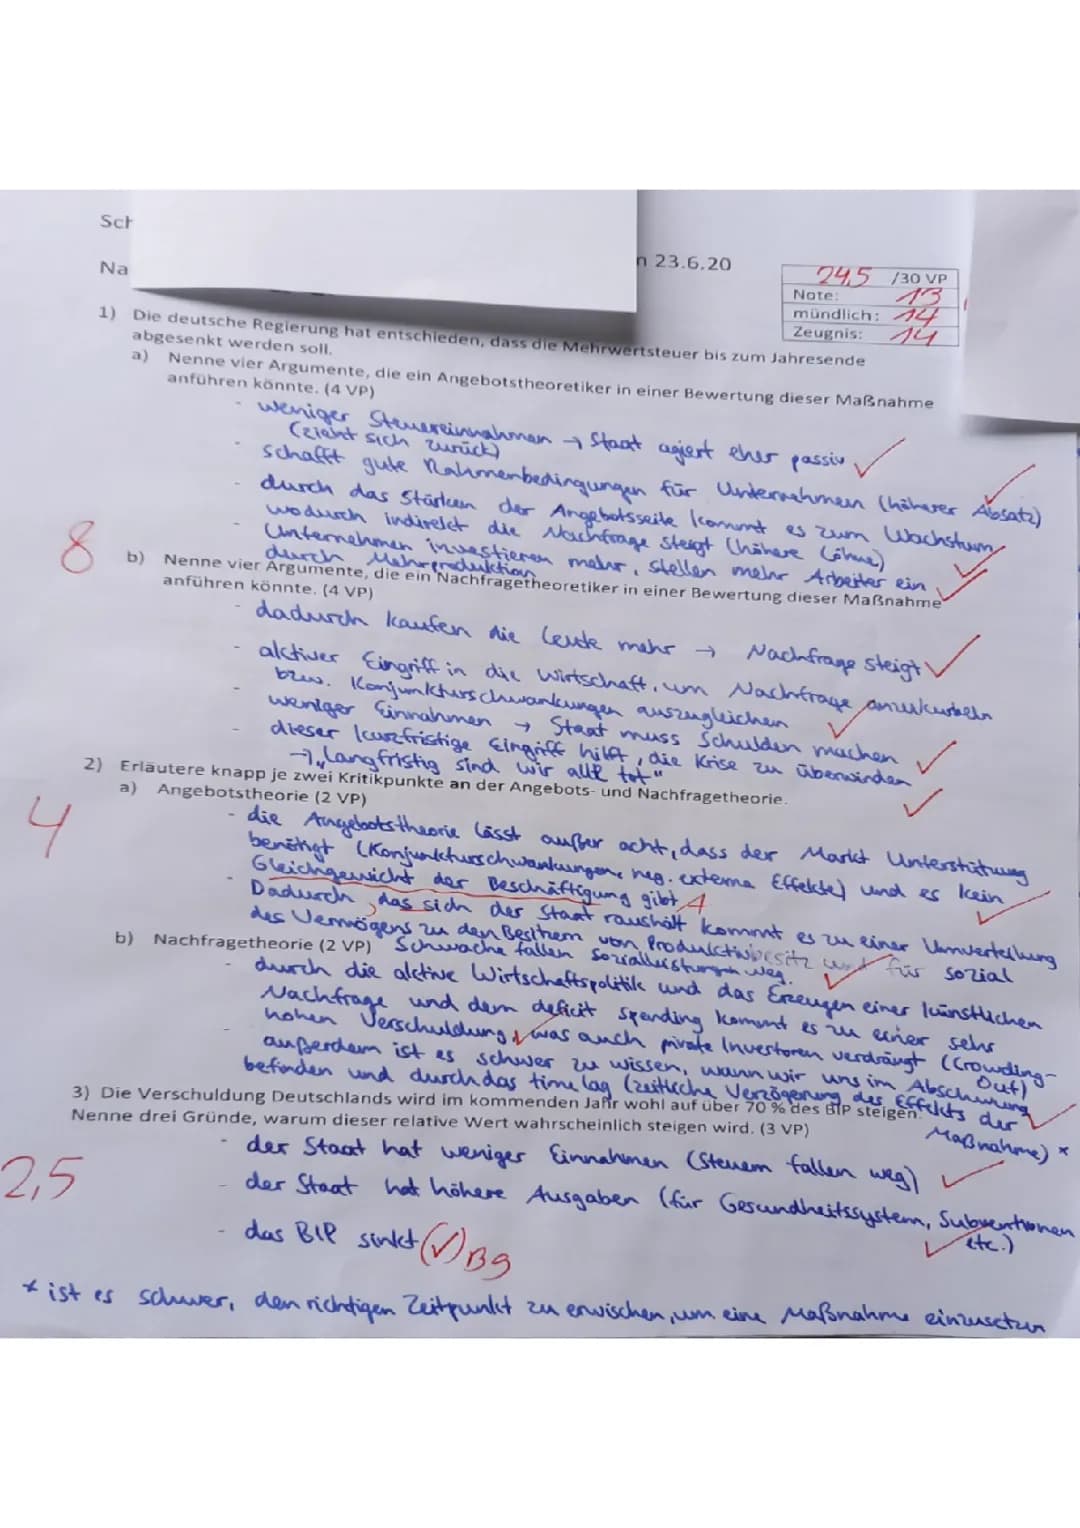 Sch
n 23.6.20
Na
24,5 /30 VP
Note: 13
mündlich: 14
Zeugnis: 14
1) Die deutsche Regierung hat entschieden, dass die Mehrwertsteuer bis zum Jahresende
abgesenkt werden soll.
a) Nenne vier Argumente, die ein Angebotstheoretiker in einer Bewertung dieser Maßnahme
anführen könnte. (4 VP)
- weniger Steuereinnahmen → Staat agiert eher passiv
(zieht sich zurück)
- schafft gute Rahmenbedingungen für Unternehmen (höherer Absatz)
- durch das Stärken der Angebotsseite kommt es zum Wachstum,
wodurch indirekt die Nachfrage steigt (höhere Löhne)
- Unternehmen investieren mehr, stellen mehr Arbeiter ein
durch Mehrproduktion
8
b) Nenne vier Argumente, die ein Nachfragetheoretiker in einer Bewertung dieser Maßnahme
anführen könnte. (4 VP)
- dadurch kaufen die Leute mehr → Nachfrage steigt
- aktiver Eingriff in die Wirtschaft, um Nachfrage anzukurbeln
bzw. Konjunkturschwankungen auszugleichen
- weniger Einnahmen → Staat muss Schulden machen
- dieser kurzfristige Eingriff hilft, die Krise zu überwinden
→ „Langfristig sind wir alle tot"
2) Erläutere knapp je zwei Kritikpunkte an der Angebots- und Nachfragetheorie.
a) Angebotstheorie (2 VP)
4
- die Angebotstheorie lässt außer acht, dass der Markt Unterstützung
benötigt (Konjunkturschwankungen, neg. externe Effekte) und es kein
Gleichgewicht der Beschäftigung gibt A
- Dadurch, das sich der Staat raushält kommt es zu einer Umverteilung
des Vermögens zu den Besitzern von Produktivbesitz und für sozial
Schwache fallen Sozialleistungen weg.
b) Nachfragetheorie (2 VP)
- durch die aktive Wirtschaftspolitik und das Erzeugen einer künstlichen
Nachfrage und dem deficit spending kommt es zu einer sehr
hohen Verschuldung, was auch private Investoren verdrängt (Crowding-
Out)
- außerdem ist es schwer zu wissen, wann wir uns im Abschwung
befinden und durch das time lag (zeitliche Verzögerung des Effekts der
Maßnahme) *
3) Die Verschuldung Deutschlands wird im kommenden Jahr wohl auf über 70 % des BIP steigen.
Nenne drei Gründe, warum dieser relative Wert wahrscheinlich steigen wird. (3 VP)
- der Staat hat weniger Einnahmen (Steuern fallen weg)
2,5
- der Staat hat höhere Ausgaben (für Gesundheitssystem, Subventionen
etc.)
- das BIP sinkt (✓) Bg
* ist es schwer, den richtigen Zeitpunkt zu erwischen, um eine Maßnahme einzusetzen